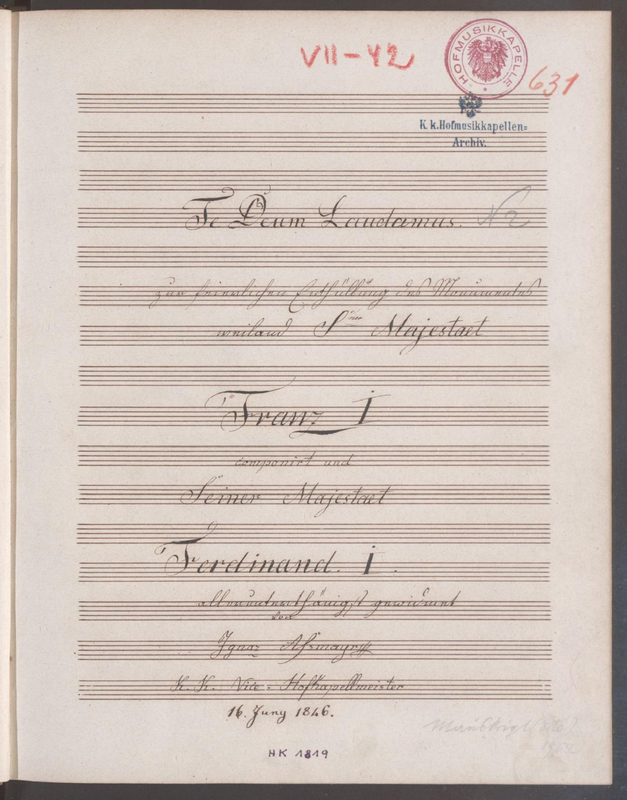 VII-42
HOFMUSIKKAPELLE
631
K. k. Hofmusikkapellen=
Archiv.
Te Deum Laudamus. N 2
zur feierlichen Enthüllung des Monumentes
weiland Sr Majestaet
Franz I
componirt und
Seiner Majestaet
Ferdinand. I.
allerunterthänigst gewidmet
von
Ignaz Assmayr
K. K. Vice-Hofkapellmeister
16. Juny 1846.
HK 1819